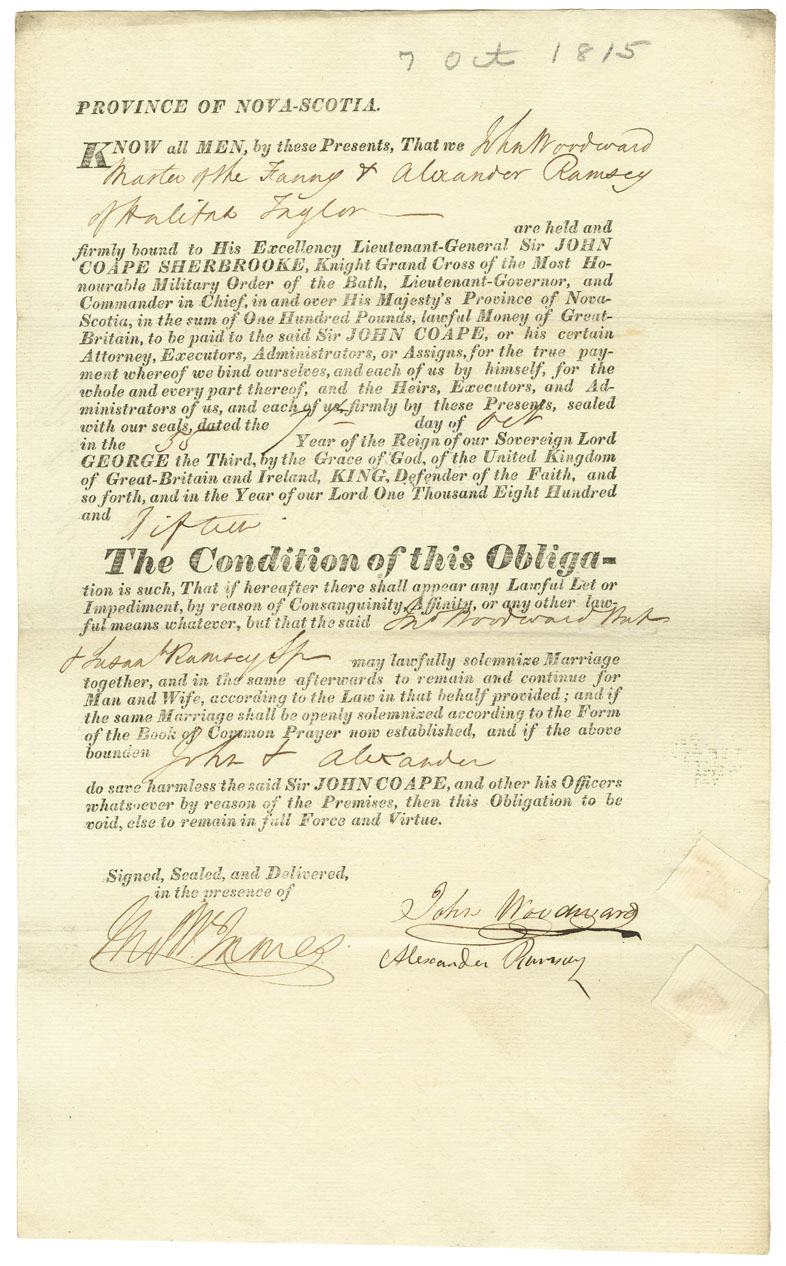 7 Oct 1815
PROVINCE OF NOVA-SCOTIA.
KNOW all MEN, by these Presents, That we John Woodward
Master of the Fanny & Alexander Ramsey
of Halifax Taylor
are held and
firmly bound to His Excellency Lieutenant-General Sir JOHN
COAPE SHERBROOKE, Knight Grand Cross of the Most Ho-
nourable Military Order of the Bath, Lieutenant-Governor, and
Commander in Chief, in and over His Majesty's Province of Nova-
Scotia, in the sum of One Hundred Pounds, lawful Money of Great-
Britain, to be paid to the said Sir JOHN COAPE, or his certain
Attorney, Executors, Administrators, or Assigns, for the true pay-
ment whereof we bind ourselves, and each of us by himself, for the
whole and every part thereof, and the Heirs, Executors, and Ad-
ministrators of us, and each of us, firmly by these Presents, sealed
with our seals, dated the 7th day of Oct
in the Year of the Reign of our Sovereign Lord
GEORGE the Third, by the Grace of God, of the United Kingdom
of Great-Britain and Ireland, KING, Defender of the Faith, and
so forth, and in the Year of our Lord One Thousand Eight Hundred
and fifteen.
The Condition of this Obliga-
tion is such, That if hereafter there shall appear any Lawful Let or
Impediment, by reason of Consanguinity, Affinity, or any other law-
ful means whatever, but that the said Jno Woodward
& Susan Ramsey Sp may lawfully solemnize Marriage
together, and in the same afterwards to remain and continue for
Man and Wife, according to the Law in that behalf provided; and if
the same Marriage shall be openly solemnized according to the Form
of the Book of Common Prayer now established, and if the above
bounden John & Alexander
do save harmless the said Sir JOHN COAPE, and other his Officers
whatsoever by reason of the Premises, then this Obligation to be
void, else to remain in full Force and Virtue.
Signed, Sealed, and Delivered,
in the presence of
Thos Wm James
John Woodward
Alexander Ramsey